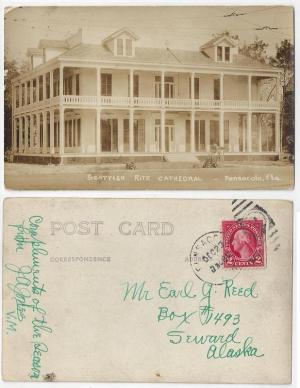 SCOTTISH RITE CATHEDRAL - Pensacola, Fla.
POST CARD
CORRESPONDENCE
Compliments of the Season
from
V.M.
PENSACO
DEC 22
2 CENTS 2
Mr Earl G. Reed
Box #1493
Seward
Alaska